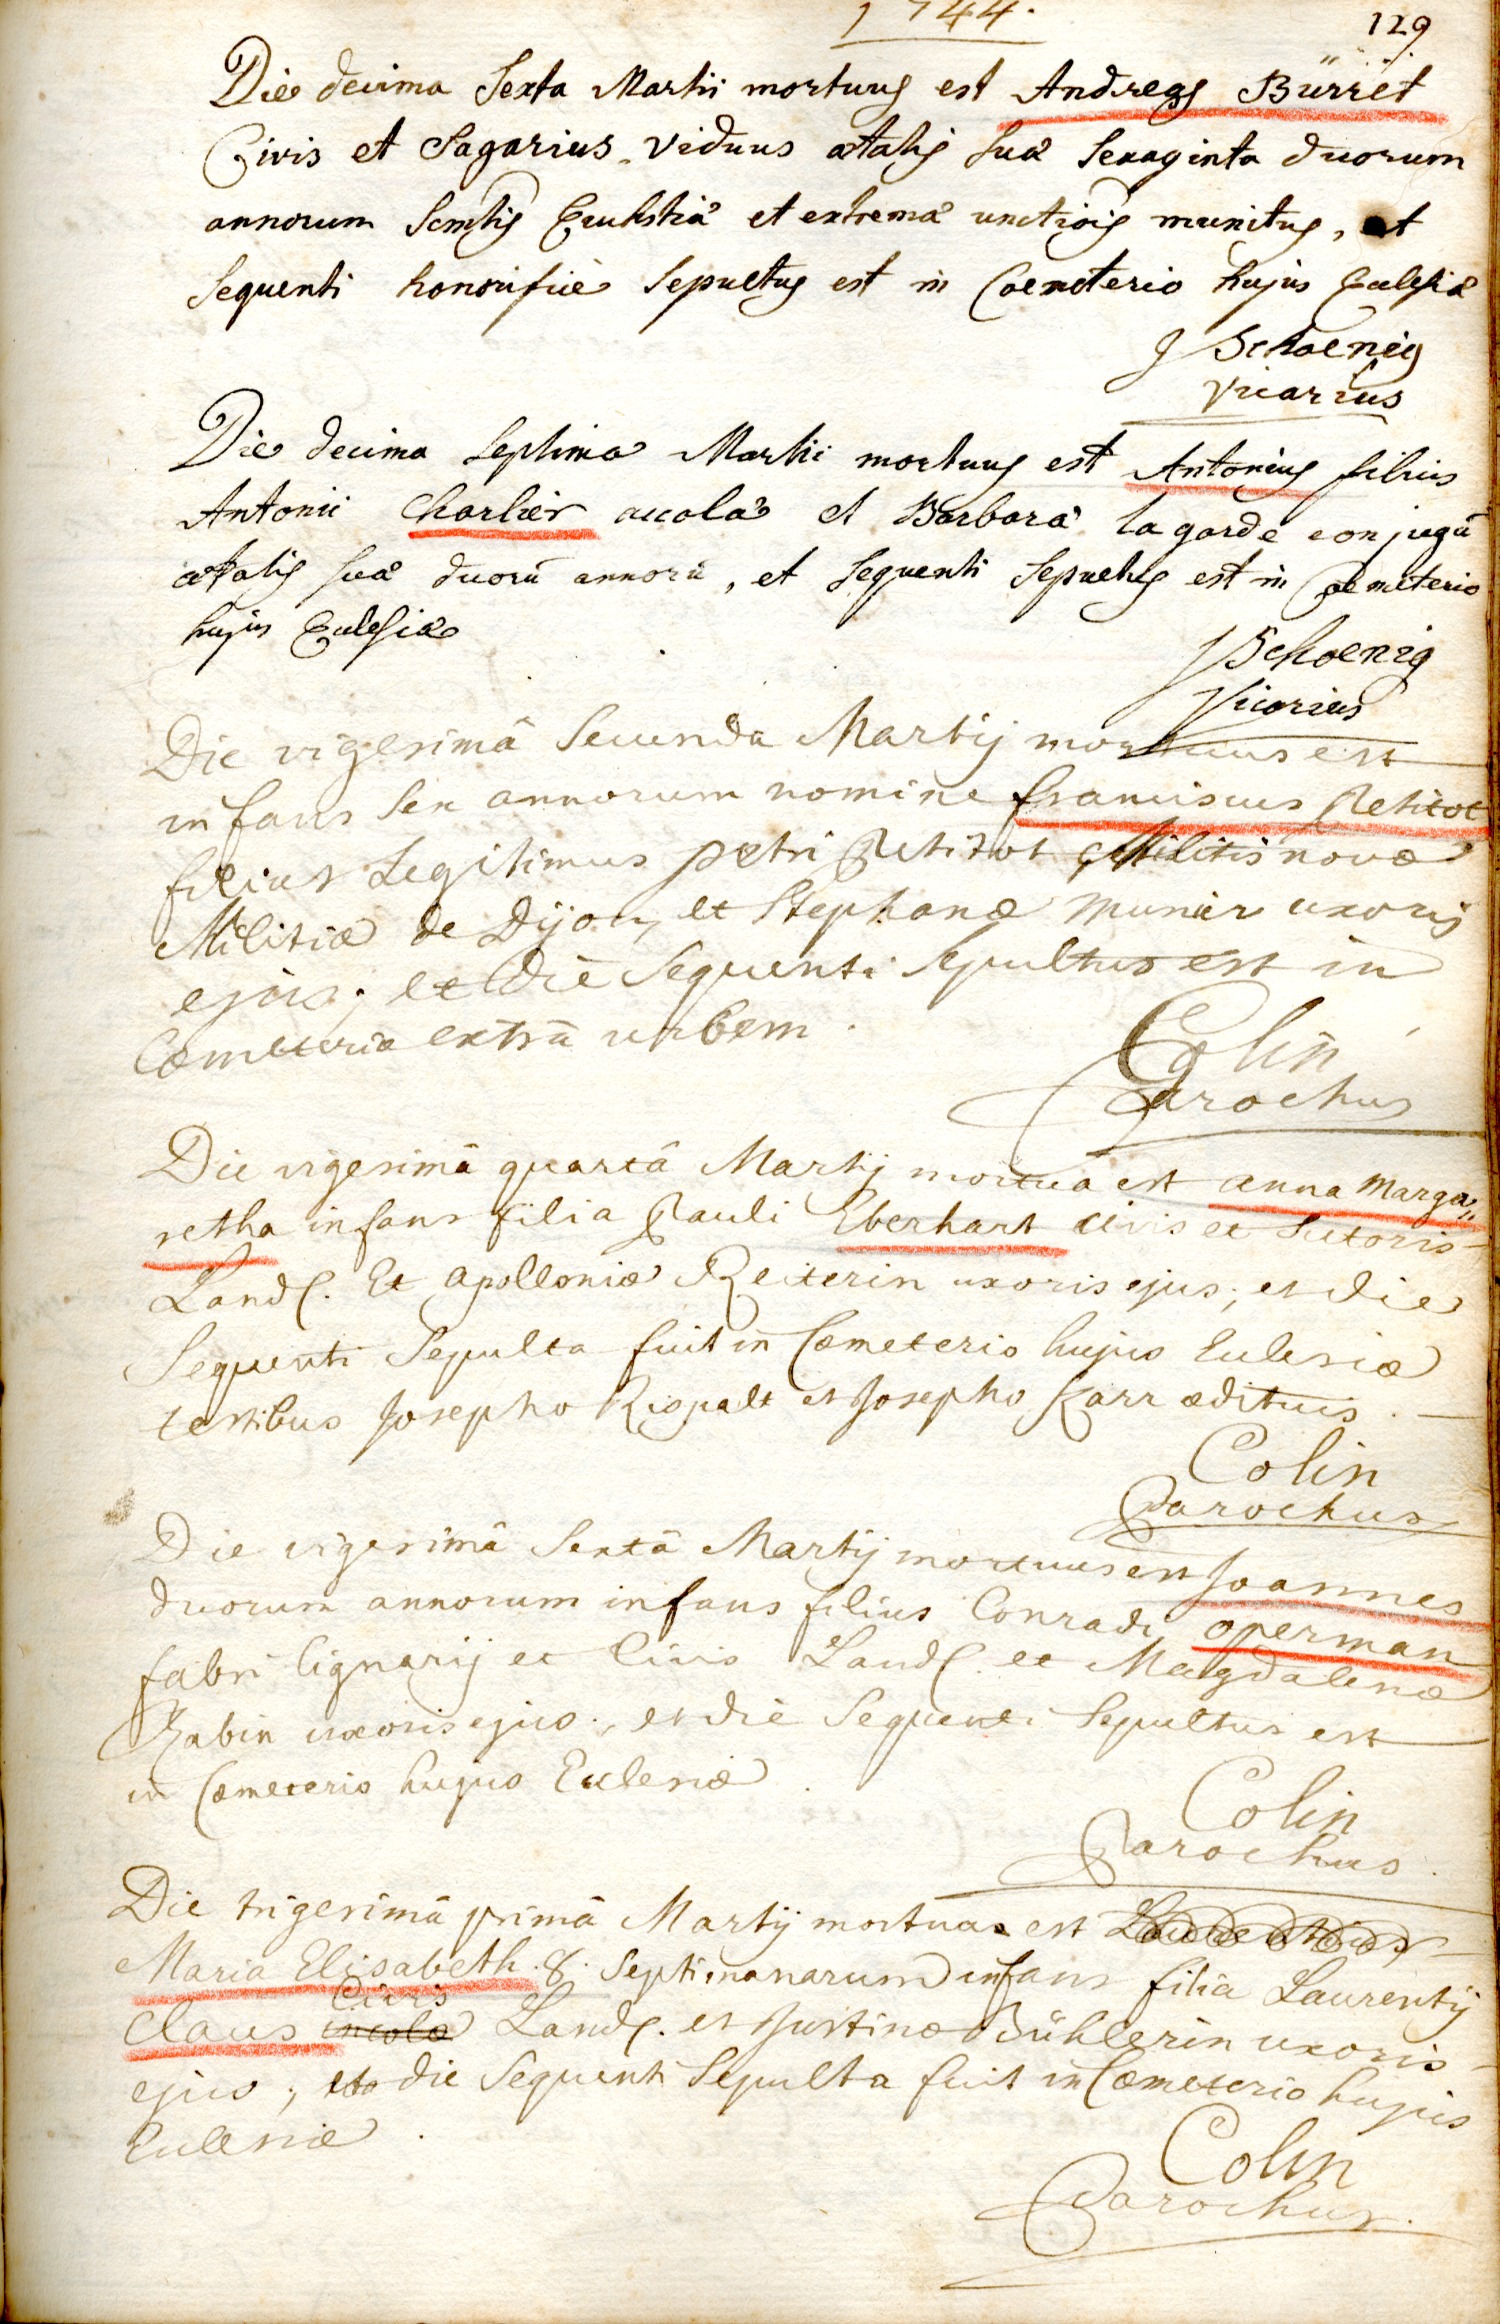 1744.
129
Die decima Sexta Martii mortuus est Andreas Bürret
Civis et Sagarius viduus ætatis suæ Sexaginta duorum
annorum Smtis Euchstiæ et extremæ unctiois munitus, et
sequenti honorifice Sepultus est in Coemeterio hujus Ecclesiæ
J Schoenig
Vicarius
Die decima Septima Martii mortuus est Antonius filius
Antonii Charlier accolæ et Barbaræ lagarde conjugū
ætatis suæ duorū annorū, et sequenti Sepultus est in Coemeterio
hujus Ecclesiæ
J Schoenig
Vicarius
Die vigesimâ Secunda Martij mortuus est
infans Sex annorum nomine franciscus Petitot
filius Legitimus petri Petitot Militis novæ
Militiæ de Dijon, et Stephanæ Munier uxoris
ejus; et die Sequenti Sepultus est in
Cœmeterio extrà urbem.
Colin
Parochus
Die vigesimâ quartâ Martij mortua est anna Marga„
retha infans filia Pauli Eberhart civis et Sutoris
Land. Et apolloniæ Reiterin uxoris ejus; et die
Sequenti Sepulta fuit in Cœmeterio hujus Ecclesiæ
testibus Josepho Rispalt et Josepho Karr ædituis.
Colin
Parochus
Die vigesimâ Sextâ Martij mortuus est Joannes
duorum annorum infans filius Conradi operman
fabri lignarij et Civis Land. et Magdalenæ
Rabin uxoris ejus; et die Sequenti Sepultus est
in Cœmeterio hujus Ecclesiæ
Colin
Parochus.
Die trigesimâ primâ Martij mortua est
Maria Elisabeth. 8. Septimanarum infans filia Laurentij
Civis
Claus incolæ Land. et Justinæ Bühlerin uxoris
ejus; et die Sequenti Sepulta fuit in Cœmeterio hujus
Ecclesiæ.
Colin
Parochus.